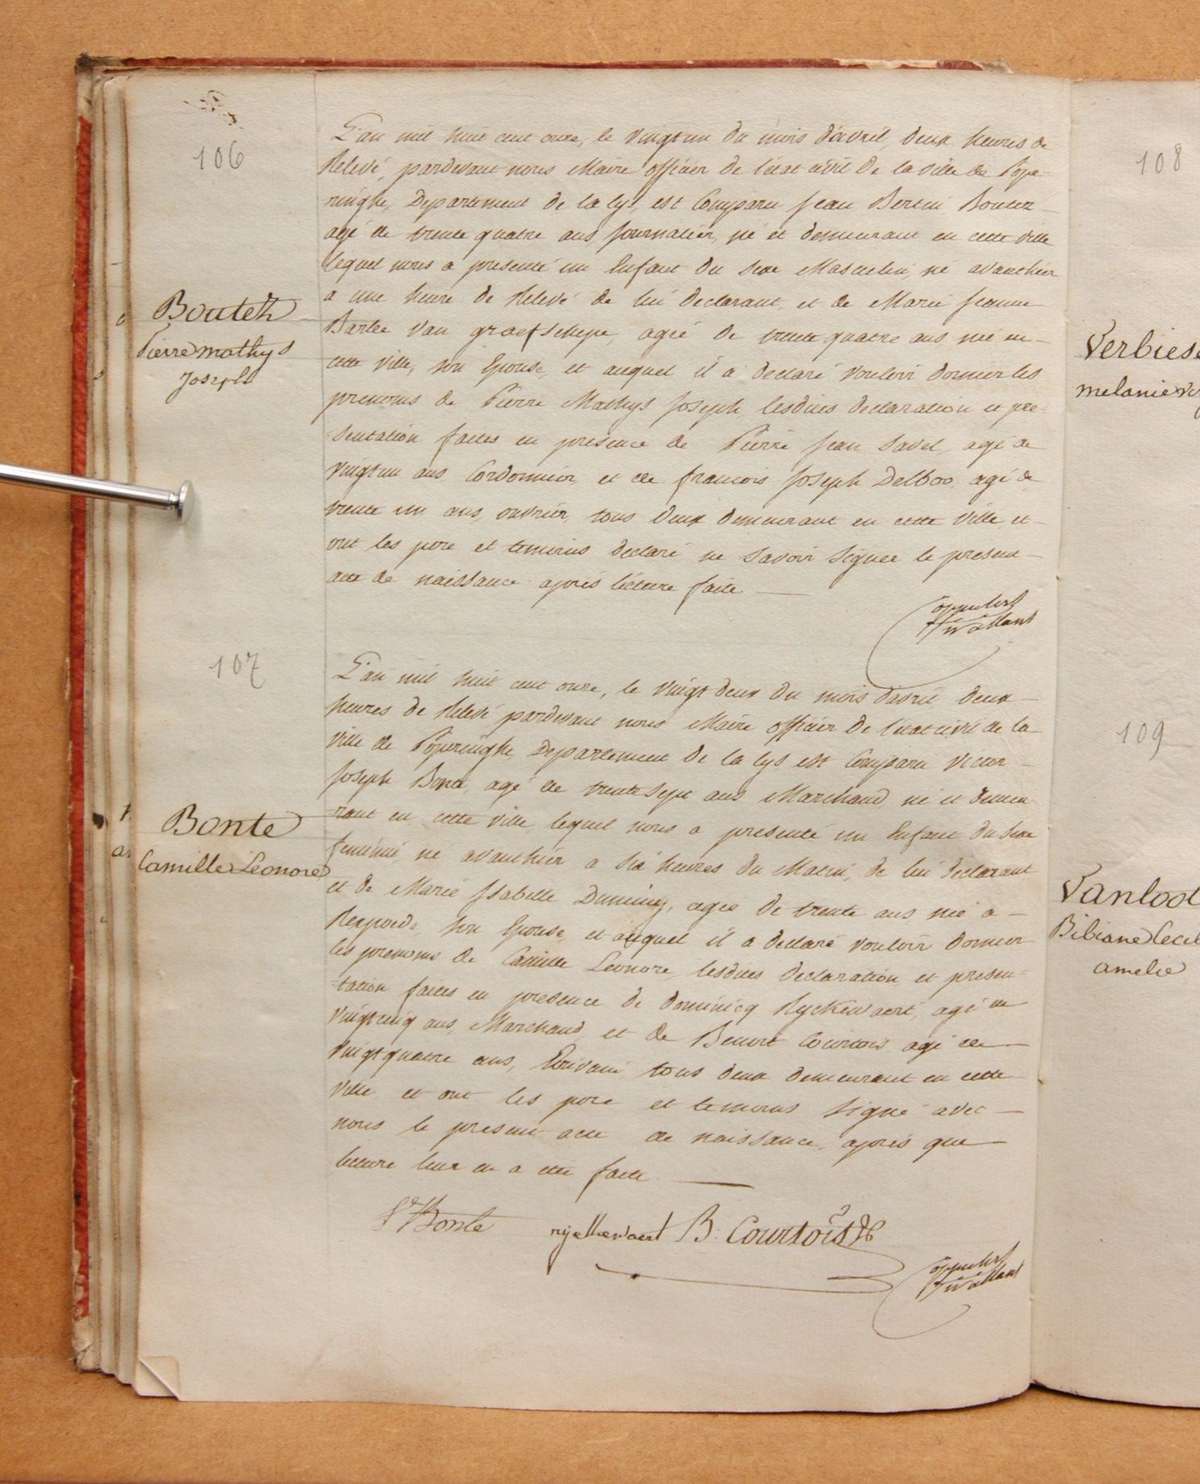 106
Bouteh
Pierre mathys
Joseph
L'an mil huit cent onze, le vingtun du mois d'avril, deux heures de
Relevé, pardevant nous Maire officier de l'etat civil de la ville de Pope-
ringhe, Departement de la Lys, est Comparu Jean Bertin
agé de trente quatre ans Journalier, né et demeurant en cette ville
lequel nous a presenté un Enfant du sexe Masculin, né avanthier
a une heure de Relevé de lui declarant et de Marie Jeanne
Barbe Van graefschepe, agée de trente quatre ans née en
cette ville, son Epouse, et auquel il a declaré vouloir donner les
prenoms de Pierre Mathys Joseph lesdites declaration et pre-
sentation faites en présence de Pierre Jean agé de
vingtun ans Cordonnier, et de francois Joseph Delboo, agé de
trente un ans, ouvrier, tous deux demeurant en cette ville et
ont les pere et temoins declaré ne savoir signer le present
acte de naissance après lécture faite
107
Bonte
Camille Leonore
L'an mil huit cent onze, le vingt deux du mois d'avril deux
heures de Relevé pardevant nous Maire officier de l'etat civil de la
ville de Poperinghe, Departement de la Lys est Comparu Victor
Joseph Bonte, agé de trente sept ans Marchand né et demeu
rant en cette ville lequel nous a presenté un Enfant du sexe
feminin né avanthier a six heures du Matin, de lui declarant
et de Marie Isabelle agée de trente ans née a
son Epouse, et auquel il a declaré vouloir donner
les prenoms de Camille Leonore lesdites declaration et presen-
tation faites en presence de dominicq Ryckewaert, agé de
vingtcinq ans, Marchand et de Benoit Courtois agé de
vingtquatre ans, Ecrivain tous deux demeurant en cette
ville et ont les pere et temoins signé avec
nous le present acte de naissance, après que
lecture leur en a eté faite
Bonte B. Courtois
108
Verbiese
melanie
109
Vanloot
Bibiane Cecil
amelie